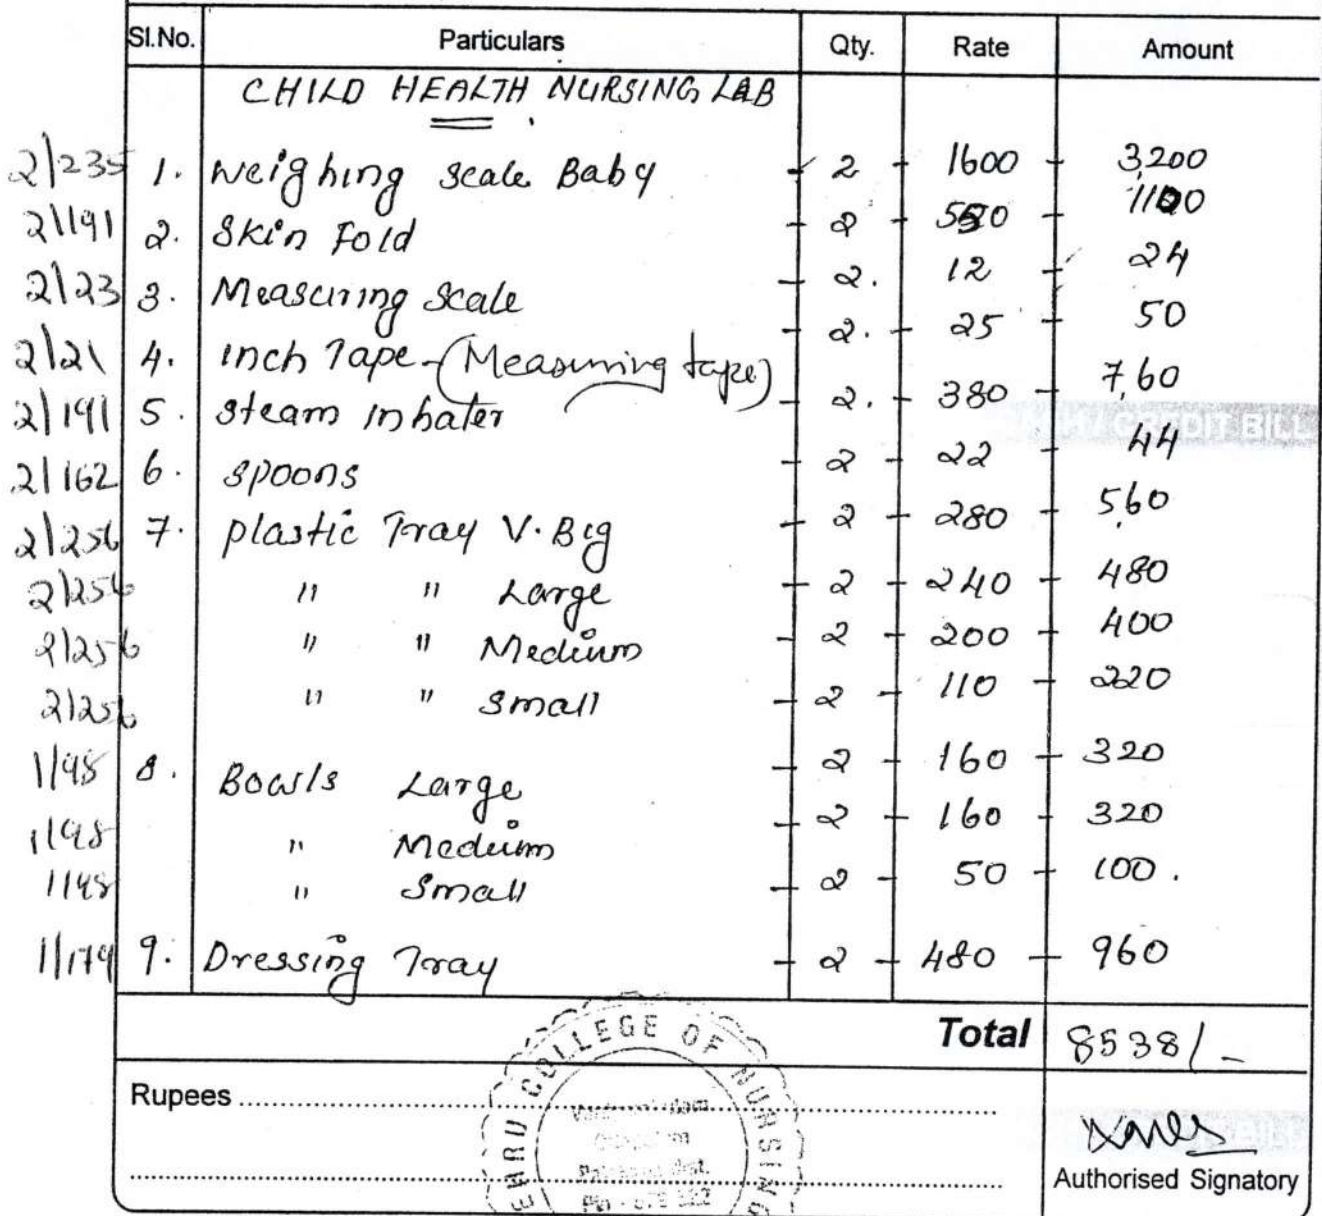 Sl.No. Particulars Qty. Rate Amount
CHILD HEALTH NURSING LAB
2/235 1. Weighing scale Baby - 2 - 1600 - 3200
2/191 2. Skin Fold - 2 - 550 - 1100
2/23 3. Measuring scale - 2. - 12 - 24
2/21 4. inch Tape - (Measuring tape) - 2. - 25 - 50
2/191 5. steam inhaler - 2. - 380 - 760
CREDIT BILL
2/162 6. spoons - 2 - 22 - 44
2/256 7. plastic Tray V. Big - 2 - 280 - 560
2/256 " " Large - 2 - 240 - 480
2/256 " " Medium - 2 - 200 - 400
2/256 " " small - 2 - 110 - 220
1/98 8. Bowls Large - 2 - 160 - 320
1/98 " Medium - 2 - 160 - 320
1/98 " Small - 2 - 50 - 100.
1/179 9. Dressing Tray - 2 - 480 - 960
Total 8538/-
Rupees
COLLEGE OF NURSING
Authorised Signatory